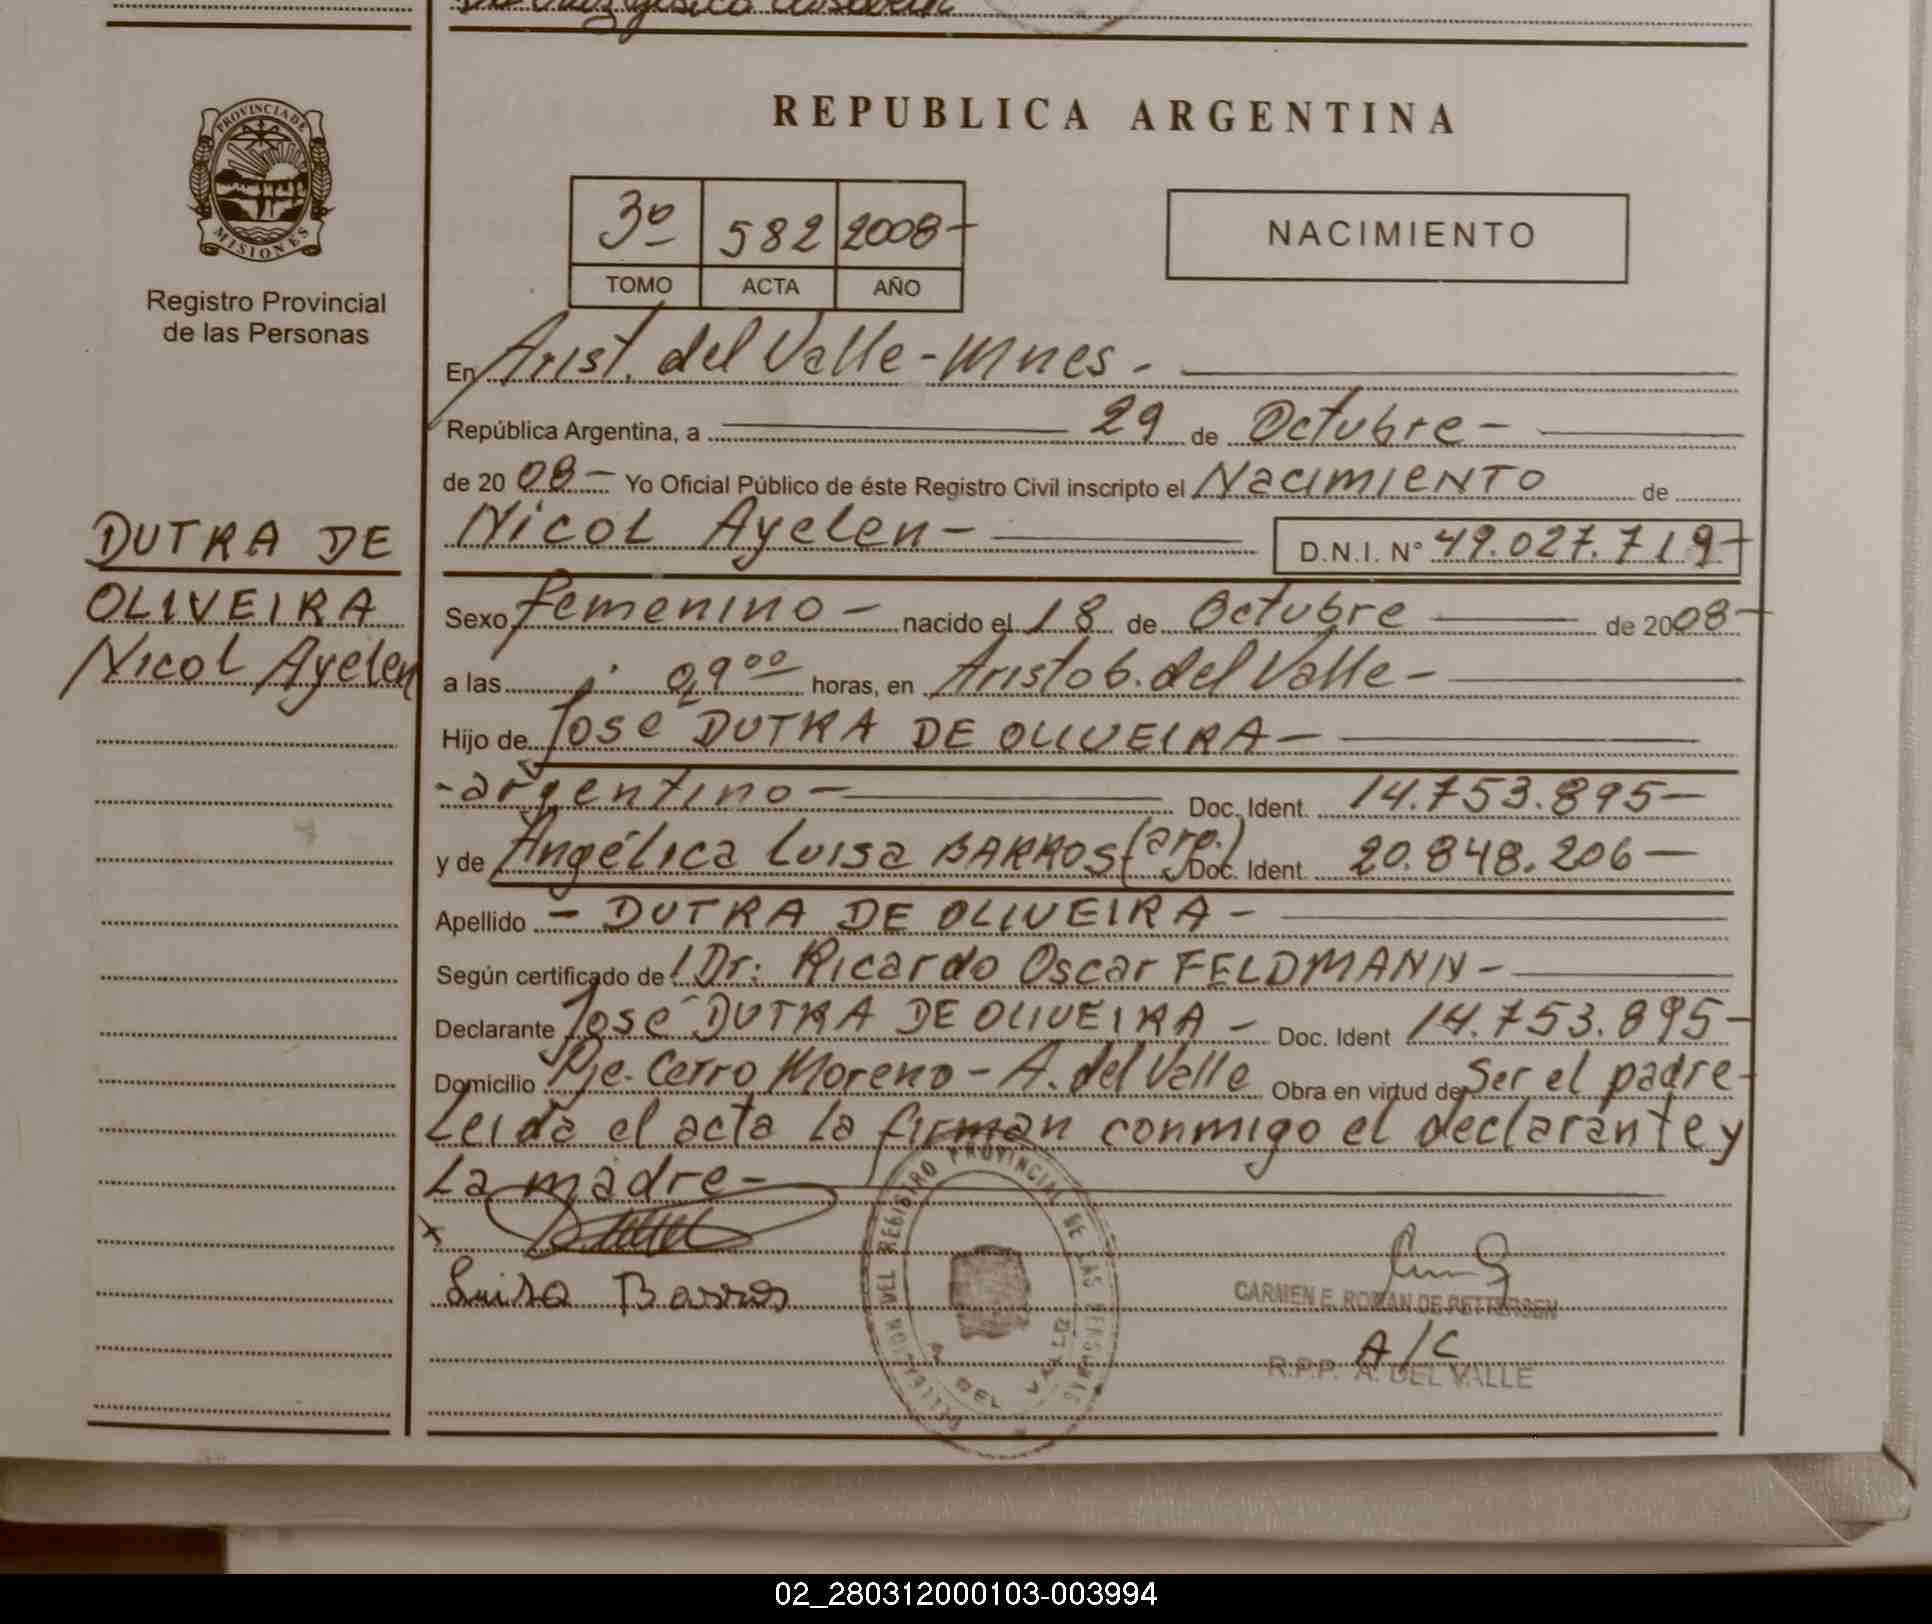 REPUBLICA ARGENTINA
PROVINCIA DE MISIONES
Registro Provincial
de las Personas
3º 582 2008-
TOMO ACTA AÑO
NACIMIENTO
En Arist. del Valle - Mnes -
República Argentina, a 29 de Octubre -
de 20 08 - Yo Oficial Público de éste Registro Civil inscripto el NACIMIENTO de
Nicol Ayelen - D.N.I. Nº 49.027.719-
DUTRA DE
OLIVEIRA
Nicol Ayelen
Sexo femenino - nacido el 18 de Octubre de 2008-
a las 09 00 horas, en Aristob. del Valle -
Hijo de José DUTRA DE OLIVEIRA -
- argentino - Doc. Ident. 14.753.895-
y de Angélica Luisa BARROS (arg.) Doc. Ident. 20.848.206-
Apellido - DUTRA DE OLIVEIRA -
Según certificado de Dr: Ricardo Oscar FELDMANN -
Declarante José DUTRA DE OLIVEIRA - Doc. Ident 14.753.895-
Domicilio Pje. Cerro Moreno - A. del Valle Obra en virtud de Ser el padre -
Leida el acta la firman conmigo el declarante y
La madre -
x
Luisa Barros
DELEGACION DEL REGISTRO PROVINCIAL DE LAS PERSONAS
A. DEL VALLE
CARMEN E. ROMAN DE PETTERSEN
A/C
R.P.P. A. DEL VALLE
02_280312000103-003994